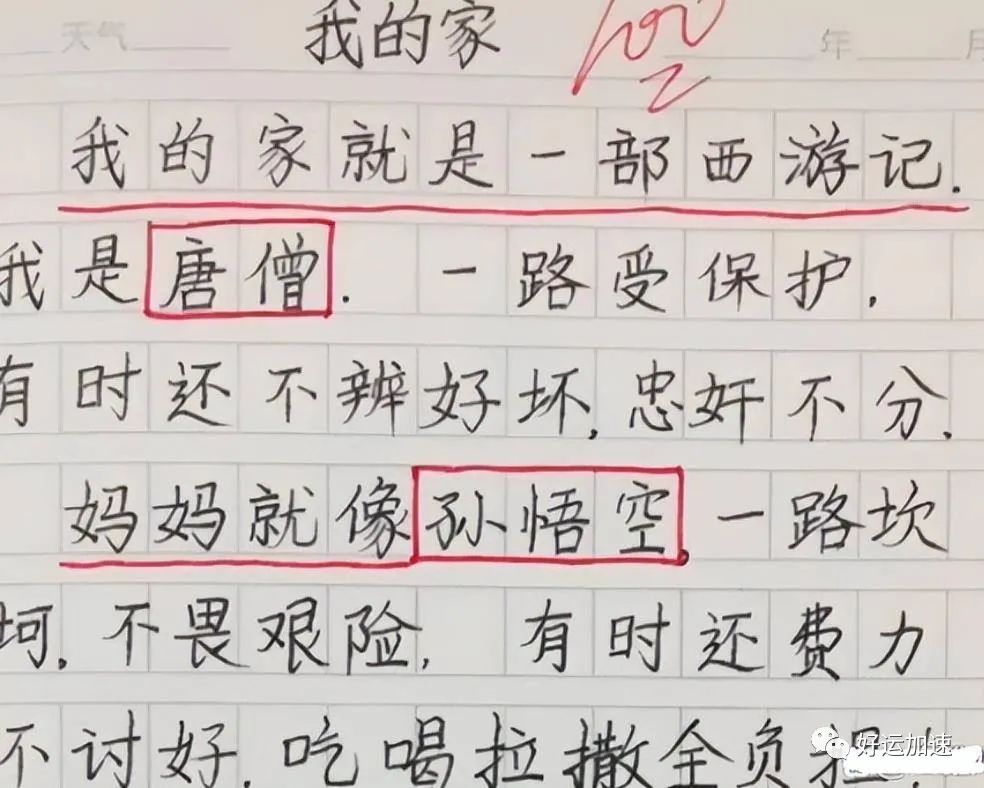 天气 我的家 100 年 月
我的家就是一部西游记.
我是唐僧. 一路受保护,
有时还不辨好坏,忠奸不分.
妈妈就像孙悟空,一路坎
坷,不畏艰险,有时还费力
不讨好,吃喝拉撒全负担,
好运加速